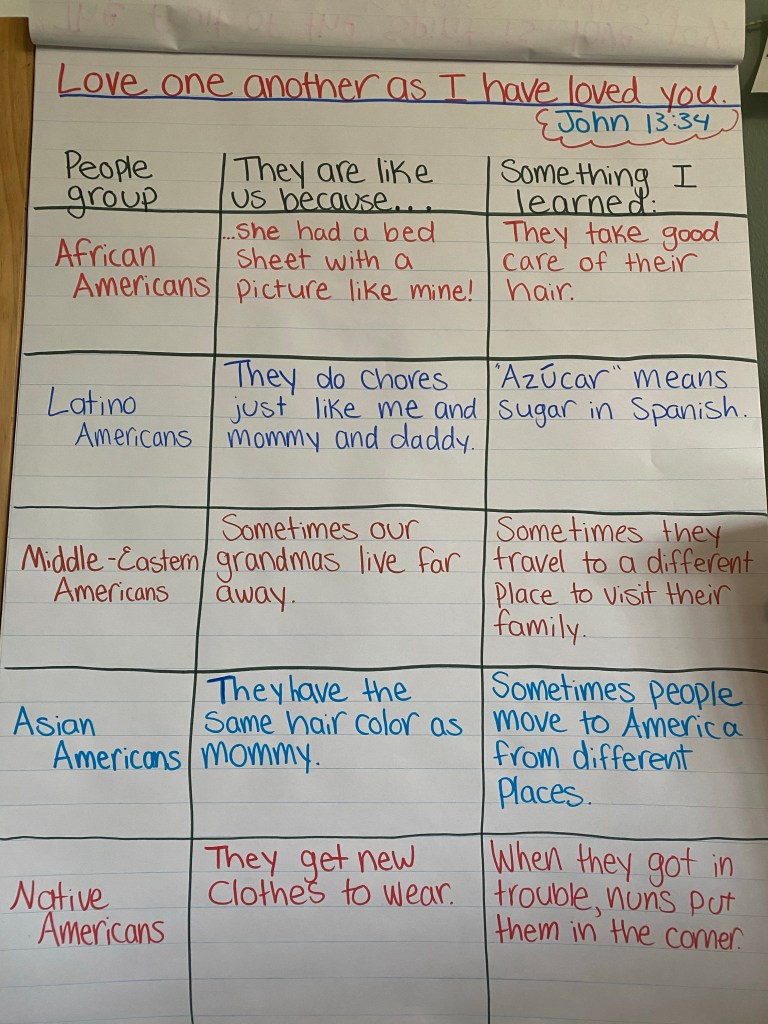 Love one another as I have loved you.
John 13:34
People
group
They are like
us because...
Something I
learned:
African
Americans
...she had a bed
sheet with a
picture like mine!
They take good
care of their
hair.
Latino
Americans
They do chores
just like me and
mommy and daddy.
"Azúcar" means
sugar in Spanish.
Middle-Eastern
Americans
Sometimes our
grandmas live far
away.
Sometimes they
travel to a different
place to visit their
family.
Asian
Americans
They have the
same hair color as
mommy.
Sometimes people
move to America
from different
places.
Native
Americans
They get new
clothes to wear.
When they got in
trouble, nuns put
them in the corner.